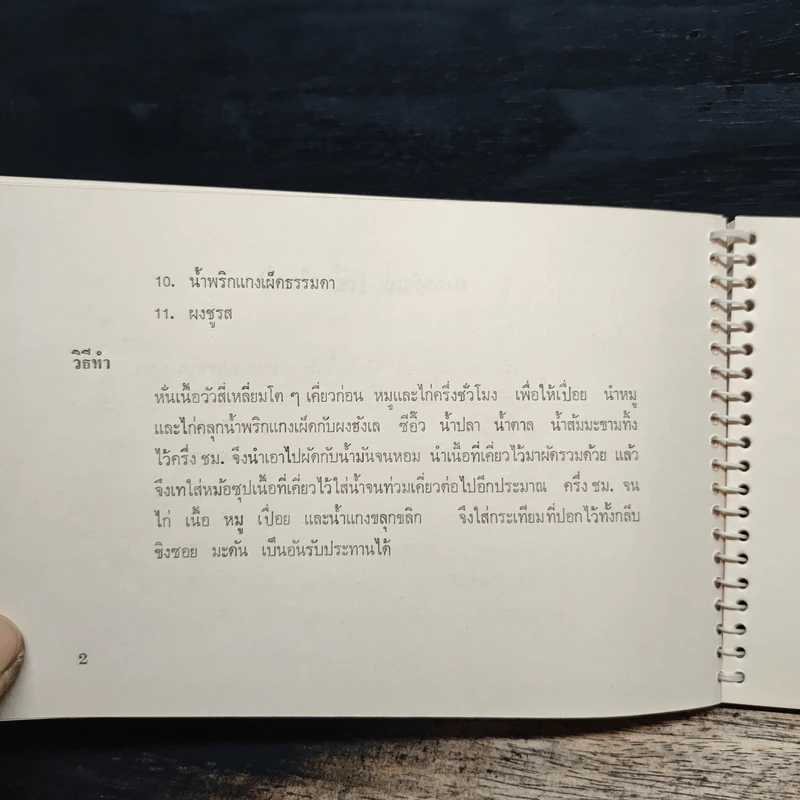 10. น้ำพริกแกงเผ็ดธรรมดา
11. ผงชูรส
วิธีทำ
หั่นเนื้อวัวสี่เหลี่ยมโต ๆ เคี่ยวก่อน หมูและไก่ครึ่งชั่วโมง เพื่อให้เปื่อย นำหมู
และไก่คลุกน้ำพริกแกงเผ็ดกับผงฮังเล ซีอิ๊ว น้ำปลา น้ำตาล น้ำส้มมะขามทิ้ง
ไว้ครึ่ง ชม. จึงนำเอาไปผัดกับน้ำมันจนหอม นำเนื้อที่เคี่ยวไว้มาผัดรวมด้วย แล้ว
จึงเทใส่หม้อซุปเนื้อที่เคี่ยวไว้ใส่น้ำจนท่วมเคี่ยวต่อไปอีกประมาณ ครึ่ง ชม. จน
ไก่ เนื้อ หมู เปื่อย และน้ำแกงขลุกขลิก จึงใส่กระเทียมที่ปอกไว้ทั้งกลีบ
ขิงซอย มะดัน เป็นอันรับประทานได้
2